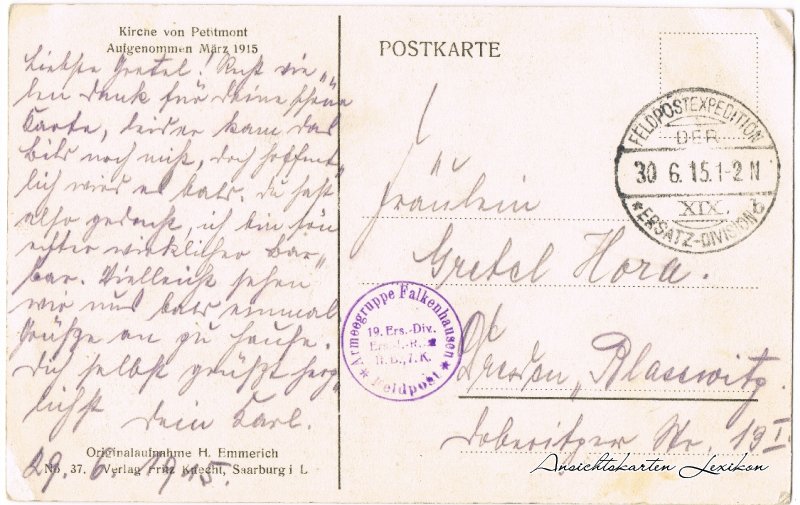 Kirche von Petitmont
Aufgenommen März 1915
Liebste Gretel! Recht vie„
len Dank für Deine schöne
Karte, leider kam das
Bild noch nicht, doch hoffent„
lich wird es bald. Du hast
also gedacht, ich bin
wirklicher Bar„
bar. Vielleicht sehen
wir uns bald einmal.
Grüße an zu Hause.
Dich selbst grüßt herz„
lichst Dein Karl.
29. 6. 1915.
Originalaufnahme H. Emmerich
No. 37. Verlag Fritz Knecht, Saarburg i L
POSTKARTE
FELDPOSTEXPEDITION
DER
30 6. 15. 1-2 N
XIX. b
* ERSATZ-DIVISION
Fräulein
Gretel Hora.
Armeegruppe Falkenhausen
19. Ers.-Div.
* Feldpost *
Dresden „Blasewitz.
Dobritzer Str. 19 I.
Ansichtskarten Lexikon